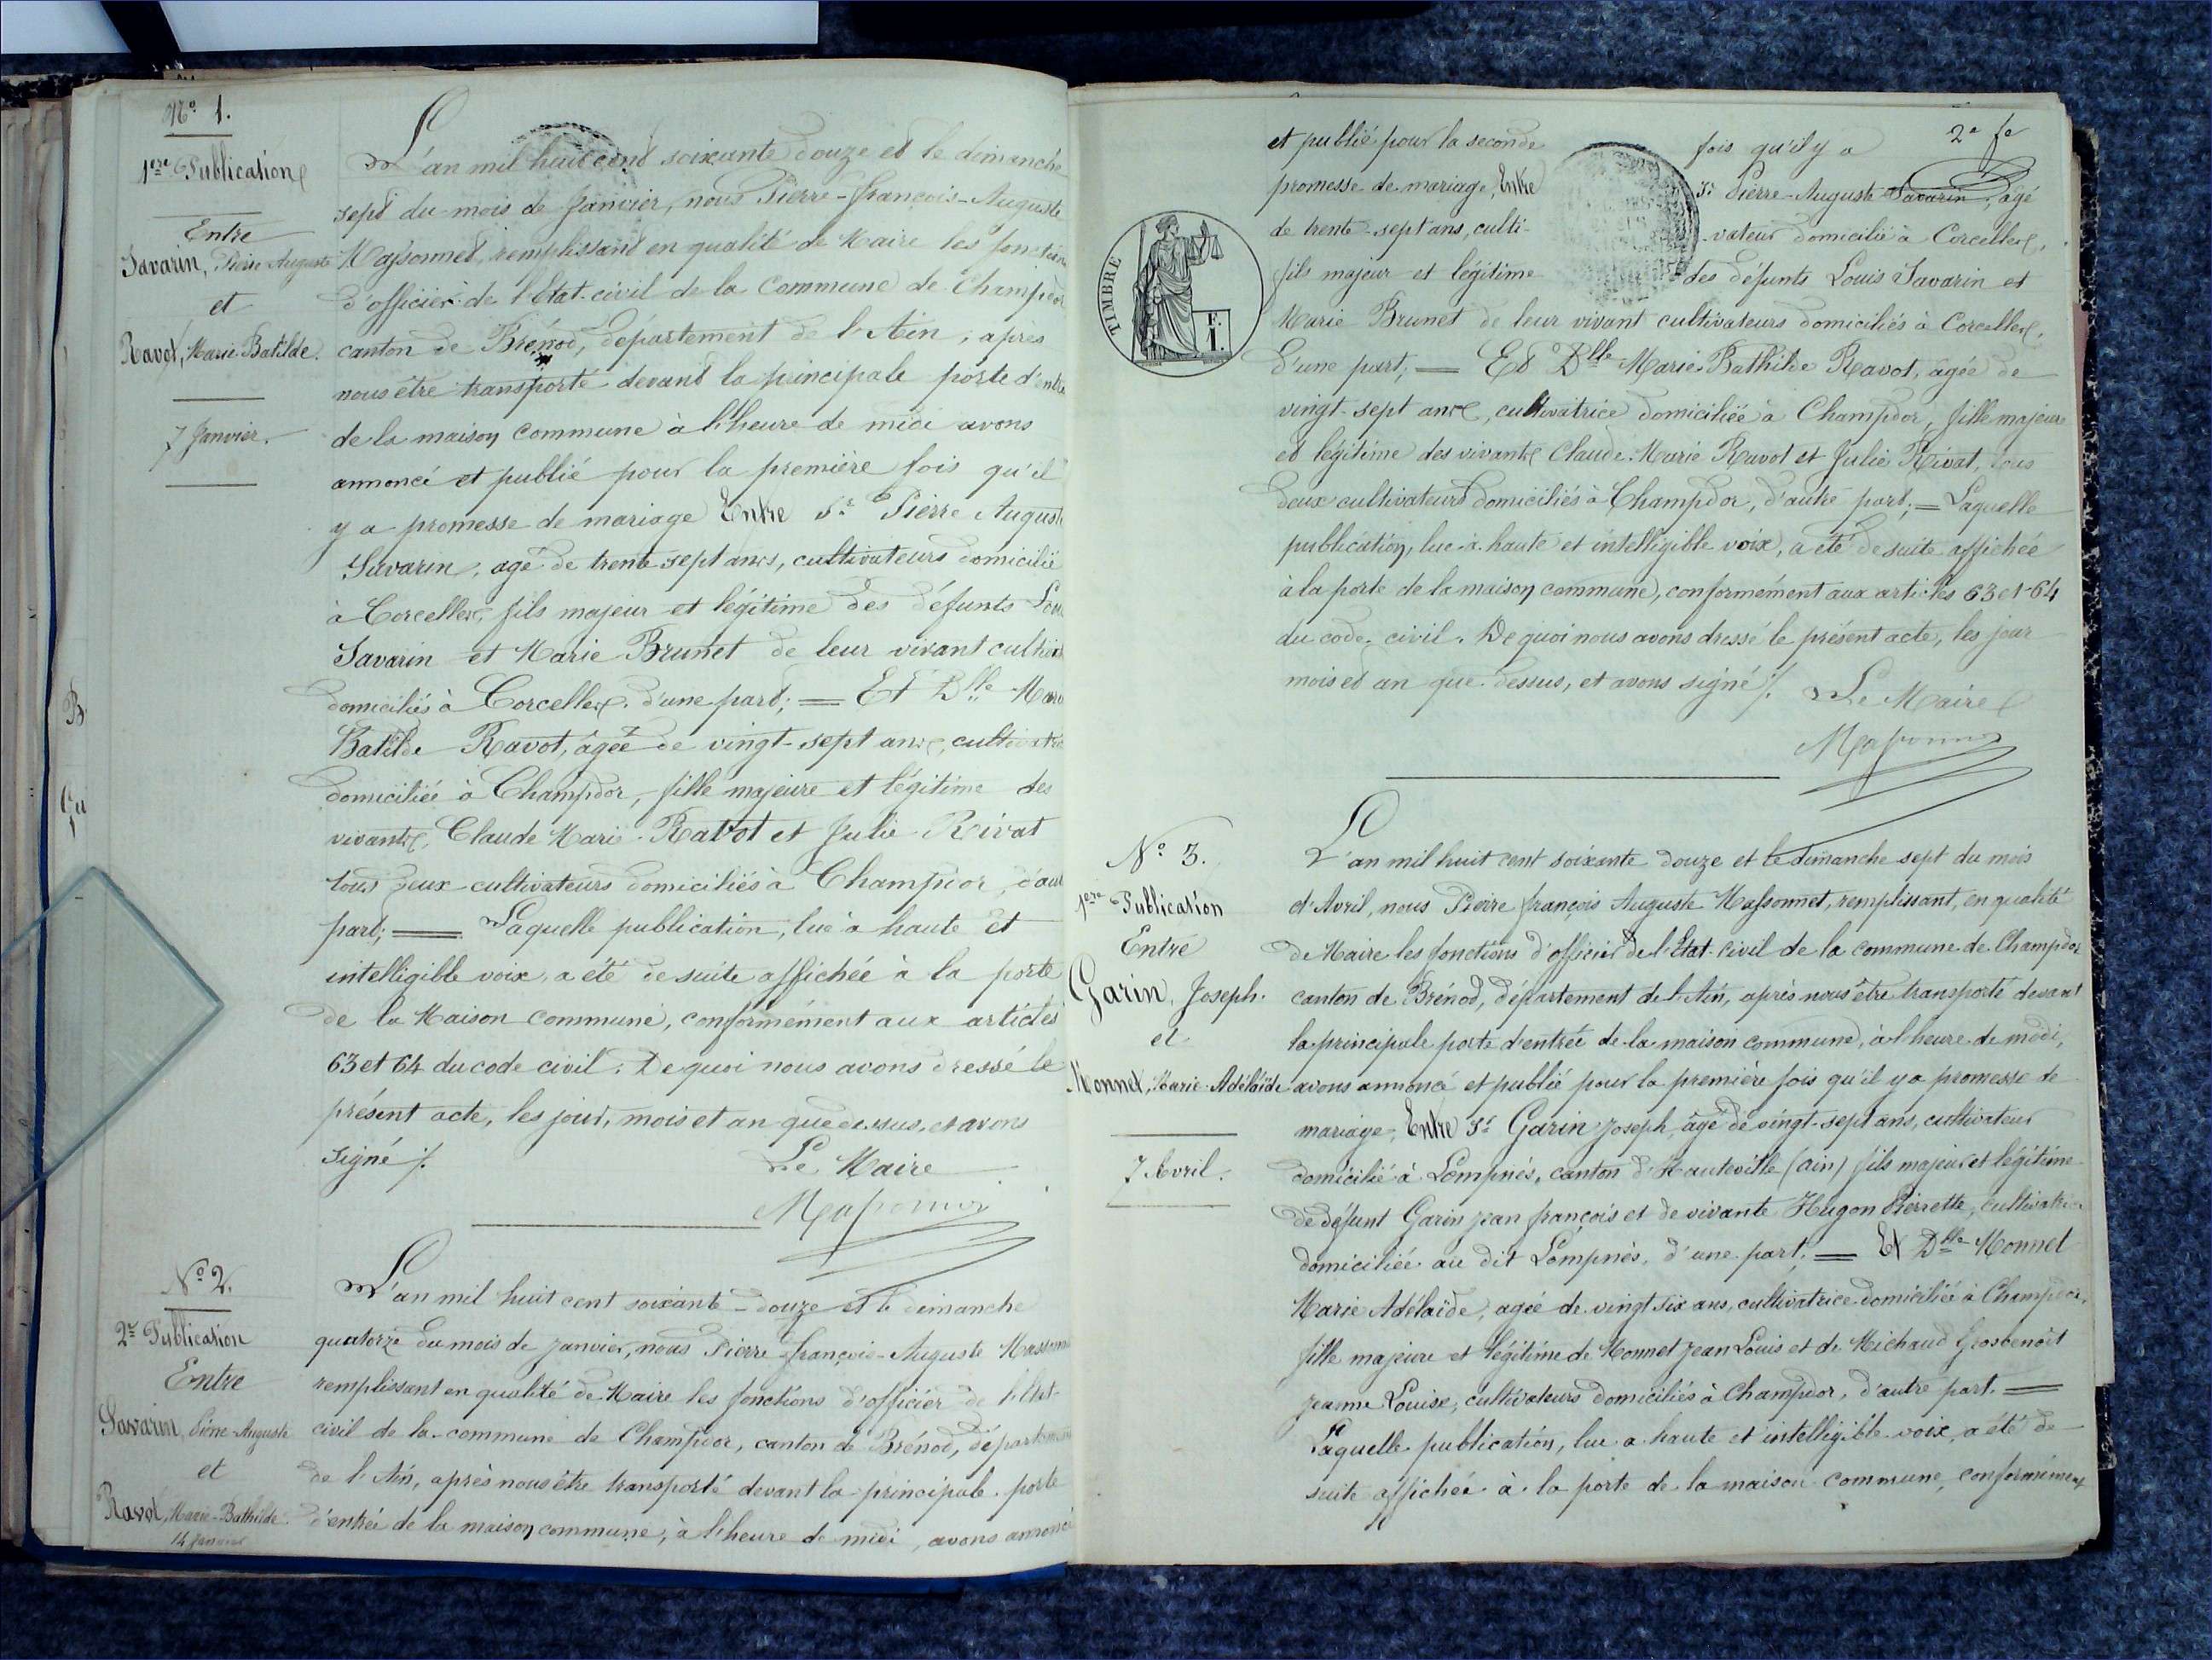 No 1.
1ere Publication
Entre
Savarin, Pierre Auguste
et
Ravot, Marie Batilde.
7 Janvier.
L'an mil huit cent soixante douze et le dimanche
sept du mois de Janvier, nous Pierre-François-Auguste
Massonnet, remplissant en qualité de Maire les fonctions
d'officier de l'Etat civil de la Commune de Champdor
canton de Brénod, département de l'Ain, après
nous être transporté devant la principale porte d'entrée
de la maison commune à l'heure de midi avons
annoncé et publié pour la première fois qu'il
y a promesse de mariage Entre Sr Pierre Auguste
Savarin, agé de trente sept ans, cultivateurs domicilié
à Corcelles, fils majeur et légitime des défunts Louis
Savarin et Marie Brunet de leur vivant cultivat
domiciliés à Corcelles, d'une part; = Et Dlle Marie
Batilde Ravot, âgée de vingt-sept ans, cultivatrice
domiciliée à Champdor, fille majeure et légitime des
vivants Claude Marie Ravot et Julie Rivat
tous deux cultivateurs domiciliés à Champdor, d'autre
part; = Laquelle publication, lue à haute et
intelligible voix, a été de suite affichée à la porte
de la Maison commune, conformément aux articles
63 et 64 du code civil. De quoi nous avons dressé le
présent acte, les jour, mois et an que dessus, et avons
signé ./.
Le Maire
Massonnet
No 2.
2e Publication
Entre
Savarin, Pierre-Auguste
et
Ravot, Marie-Bathilde.
14 Janvier
L'an mil huit cent soixante-douze et le dimanche
quatorze du mois de janvier, nous Pierre-françois-Auguste Massonnet
remplissant en qualité de Maire les fonctions d'officier de l'Etat-
civil de la commune de Champdor, canton de Brénod, département
de l'Ain, après nous être transporté devant la principale porte
d'entrée de la maison commune, à l'heure de midi, avons annoncé
2e fe
et publié pour la seconde fois qu'il y a
promesse de mariage, Entre Sr Pierre-Auguste Savarin, agé
de trente-sept ans, culti-vateur domicilié à Corcelles,
fils majeur et légitime des défunts Louis Savarin et
Marie Brunet de leur vivant cultivateurs domiciliés à Corcelles.
d'une part; = Et Dlle Marie Bathilde Ravot, âgée de
vingt-sept ans, cultivatrice domiciliée à Champdor, fille majeure
et légitime des vivants Claude Marie Ravot et Julie Rivat, tous
deux cultivateurs domiciliés à Champdor, d'autre part; = Laquelle
publication, lue à haute et intelligible voix, a été de suite affichée
à la porte de la maison commune, conformément aux articles 63 et 64
du code civil. De quoi nous avons dressé le présent acte, les jour
mois et an que dessus, et avons signé ./.
Le Maire
Massonnet
TIMBRE
F.
1.
No 3.
1ere Publication
Entre
Garin, Joseph.
et
Monnet, Marie-Adélaïde
7 Avril.
L'an mil huit cent soixante douze et le dimanche sept du mois
d'Avril, nous Pierre françois Auguste Massonnet, remplissant, en qualité
de Maire les fonctions d'officier de l'Etat-civil de la commune de Champdor
canton de Brénod, département de l'Ain, après nous être transporté devant
la principale porte d'entrée de la maison commune, à l'heure de midi,
avons annoncé et publié pour la première fois qu'il y a promesse de
mariage, Entre Sr Garin Joseph, âgé de vingt-sept ans, cultivateur
domicilié à Lompnés, canton d'Hauteville (Ain) fils majeur et légitime
de défunt Garin jean françois et de vivante Hugon Pierrette, cultivatrice
domiciliée au dit Lompnés, d'une part; = Et Dlle Monnet
Marie Adélaïde, agée de vingt six ans, cultivatrice domiciliée à Champdor,
fille majeure et légitime de Monnet jean Louis et de Michaud Grosbenoit
jeanne Louise, cultivateurs domiciliés à Champdor, d'autre part. =
Laquelle publication, lue a haute et intelligible voix, a été de
suite affichée à la porte de la maison commune, conformément